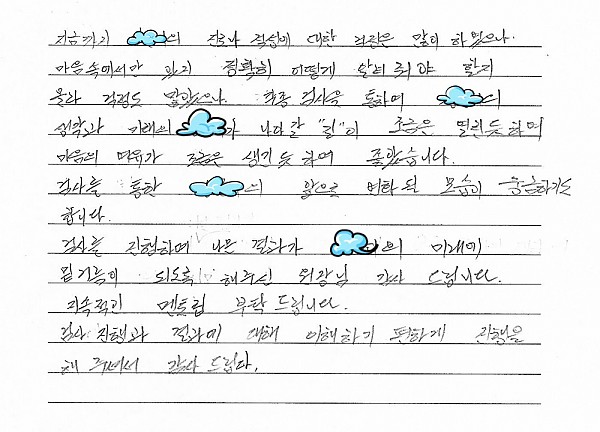 지금까지 의 진로나 적성에 대한 의논은 많이 하였으나.
마음속에서만 있지 정확히 어떻게 알려줘야 할지
몰라 걱정도 많았으나. 각종 검사을 통하여 의
생각과 미래의 가 나다갈 "길"이 조금은 열린듯 하며
마음의 여유가 조금은 생기듯 하여 좋았습니다.
검사를 통한 의 앞으로 변화 된 모습이 궁금하기도
합니다.
검사를 진행하며 나온 결과가 의 미래에
밑거름이 되도록 해주신 원장님 감사 드립니다.
지속적인 멘토링 부탁드립니다.
검사 진행과 결과에 대해 이해하기 편하게 진행을
해 주셔서 감사 드립니다.